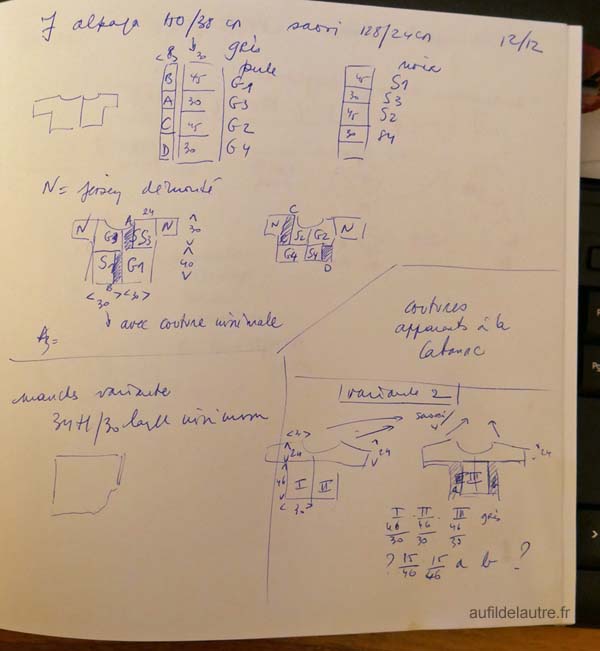 J alpaga 150/38 cm saori 128/24 cm 12/12
30 gris
B 45 G1
A 30 G3
C 45 G2
D 30 G4
noir
45 S1
30 S3
45 S2
30 S4
N = jersey démonté
24
N G3 A S3 N 30
S1 G1 40
B
30 30
C
N S2 G2 N
G4 S4
D
↓ avec couture minimale
coutures
apparents à la
manches variante
34H/30 large minimum
variante 2
saori
24 24 24
46 I II III
30
I II III gris
46 46 46
30 30 30
? 15 15 a b ?
46 46
aufildelautre.fr